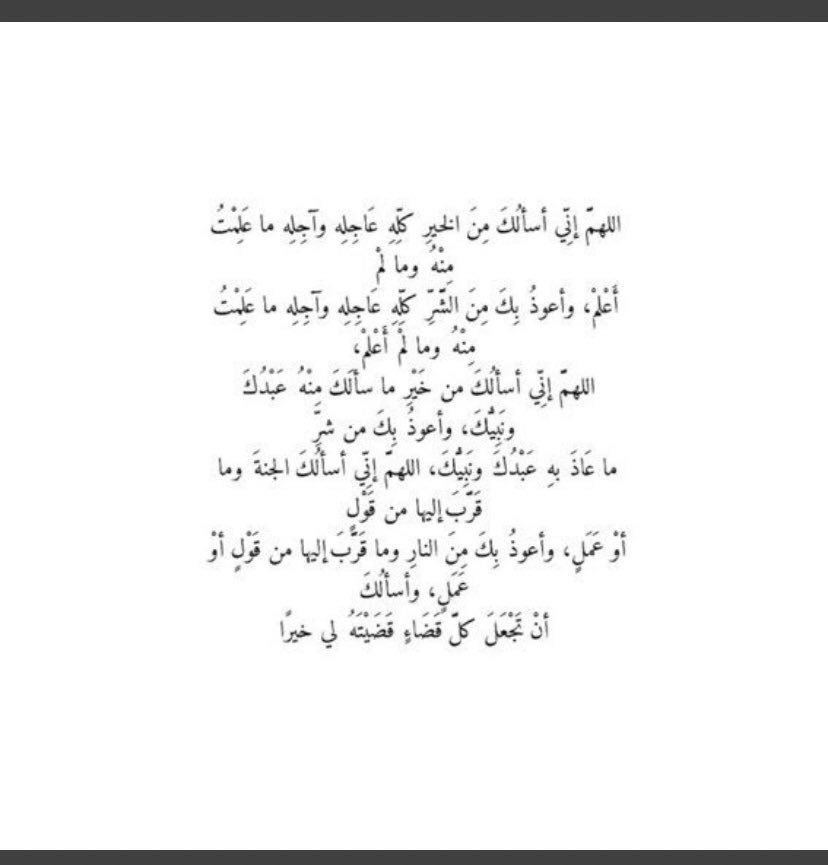 اللهمّ إنِّي أسألُكَ مِنَ الخيرِ كلِّهِ عَاجِلِه وآجِلِه ما عَلِمْتُ
مِنْهُ وما لمْ
أَعْلمْ، وأعوذُ بِكَ مِنَ الشَّرِّ كلِّهِ عَاجِلِه وآجِلِه ما عَلِمْتُ
مِنْهُ وما لمْ أَعْلمْ،
اللهمّ إنِّي أسألُكَ من خَيْرِ ما سألَكَ مِنْهُ عَبْدُكَ
ونَبِيُّكَ، وأعوذُ بِكَ من شرِّ
ما عَاذَ بهِ عَبْدُكَ ونَبِيُّكَ، اللهمّ إنِّي أسألُكَ الجنةَ وما
قَرَّبَ إليها من قَوْلٍ
أوْ عَمَلٍ، وأعوذُ بِكَ مِنَ النارِ وما قَرَّبَ إليها من قَوْلٍ أوْ
عَمَلٍ، وأسألُكَ
أنْ تَجْعَلَ كلّ قَضَاءٍ قَضَيْتَهُ لي خيرًا